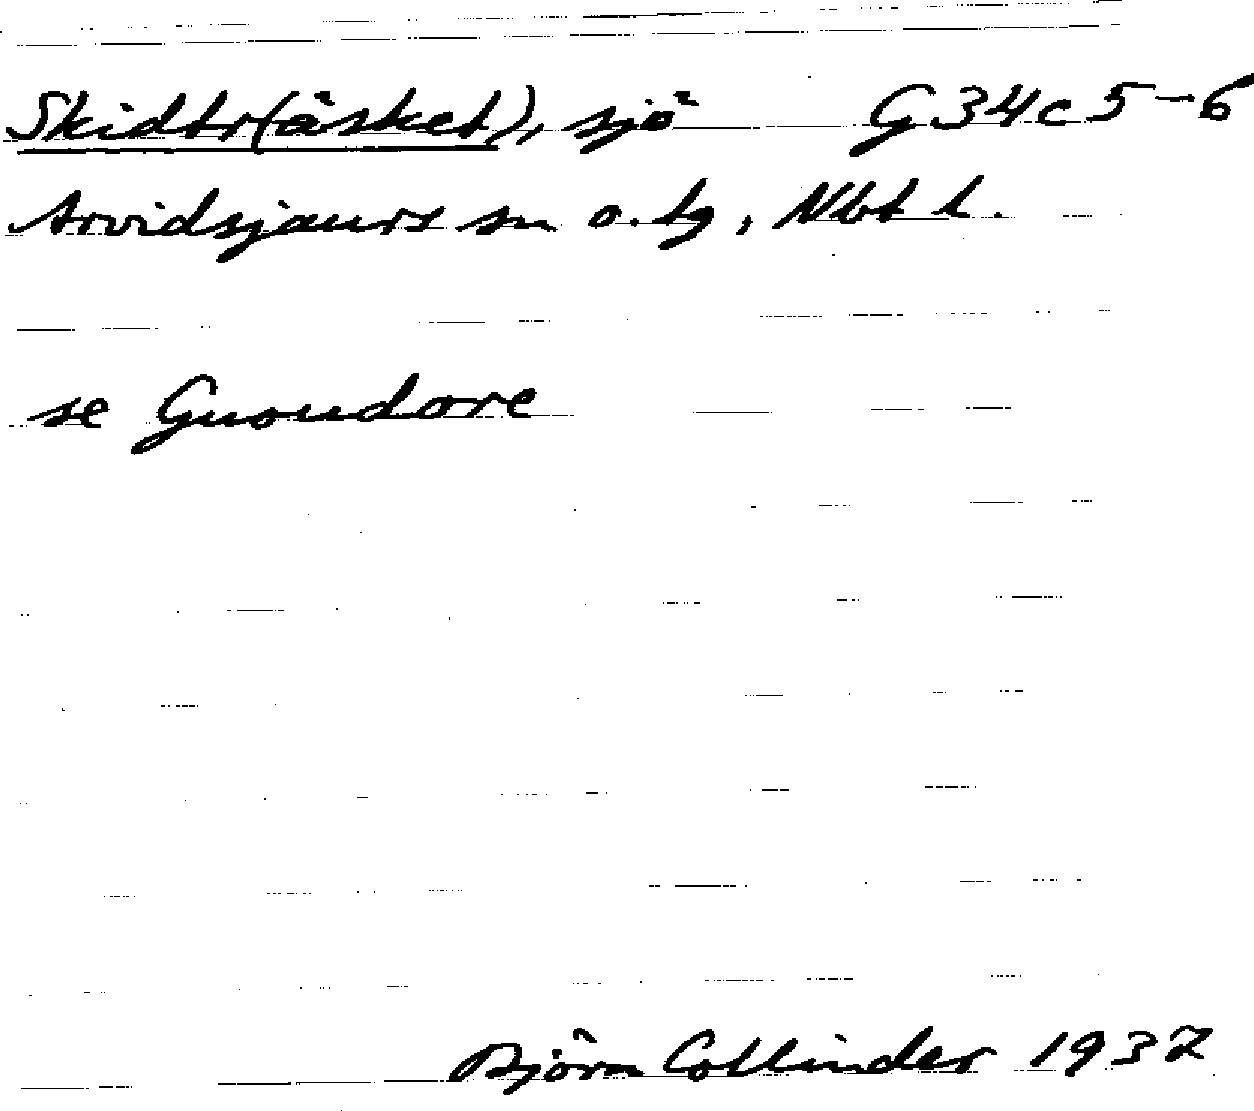 Skidtr(äsket), sjö G34c5-6
Arvidsjaurs sn o. tg, Nbt l.
se Guoudore
Björn Collinder 1937